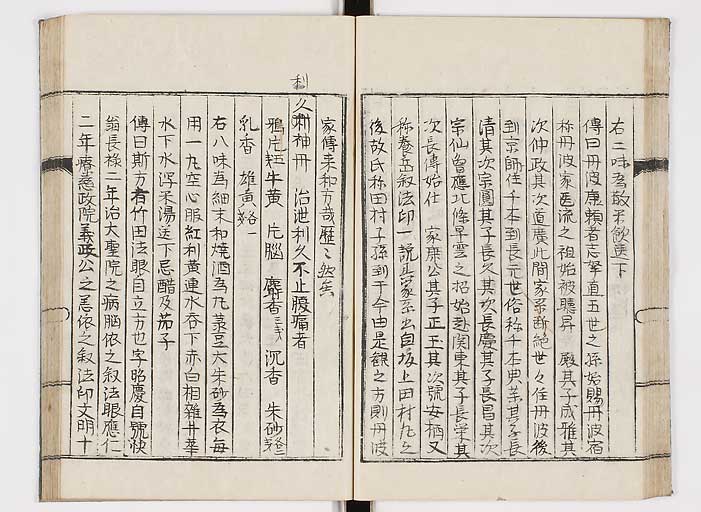 右二味為散和飲送下
傳曰丹波康頼者志拏直五世之孫始賜丹波宿
称丹波家医流之祖始被聴昇 殿其子成雅其
次仲政其次道廣此間家系断絶世々住丹波後
到京師住千本到長元世俗称千本典薬其子長
清其次宗圓其子長久其次長慶其子長昌其次
宗仙曽應北條早雲之招始赴関東其子長栄其
次長傳始仕 家康公其子正玉其次號安栖又
称養岳叙法印一説此家系出自坂上田村丸之
後故氏称田村子孫到于今由是観之方則丹波
家傳来和方哉歴々然矣
利
久利神丹 治泄利久不止腹痛者
鴉片五 牛黄 片脳 麝香 沉香 朱砂
乳香 雄黄
右八味為細末和焼酒為丸菉豆大朱砂為衣毎
用一丸空心服紅利黄連水吞下赤白相雜井華
水下水泻米湯送下忌醋及茄子
傳曰斯方有竹田法眼自立方也字昭慶自號快
翁長禄二年治大聖院之病脳依之叙法眼應仁
二年療慈政院義政公之恙依之叙法印文明十